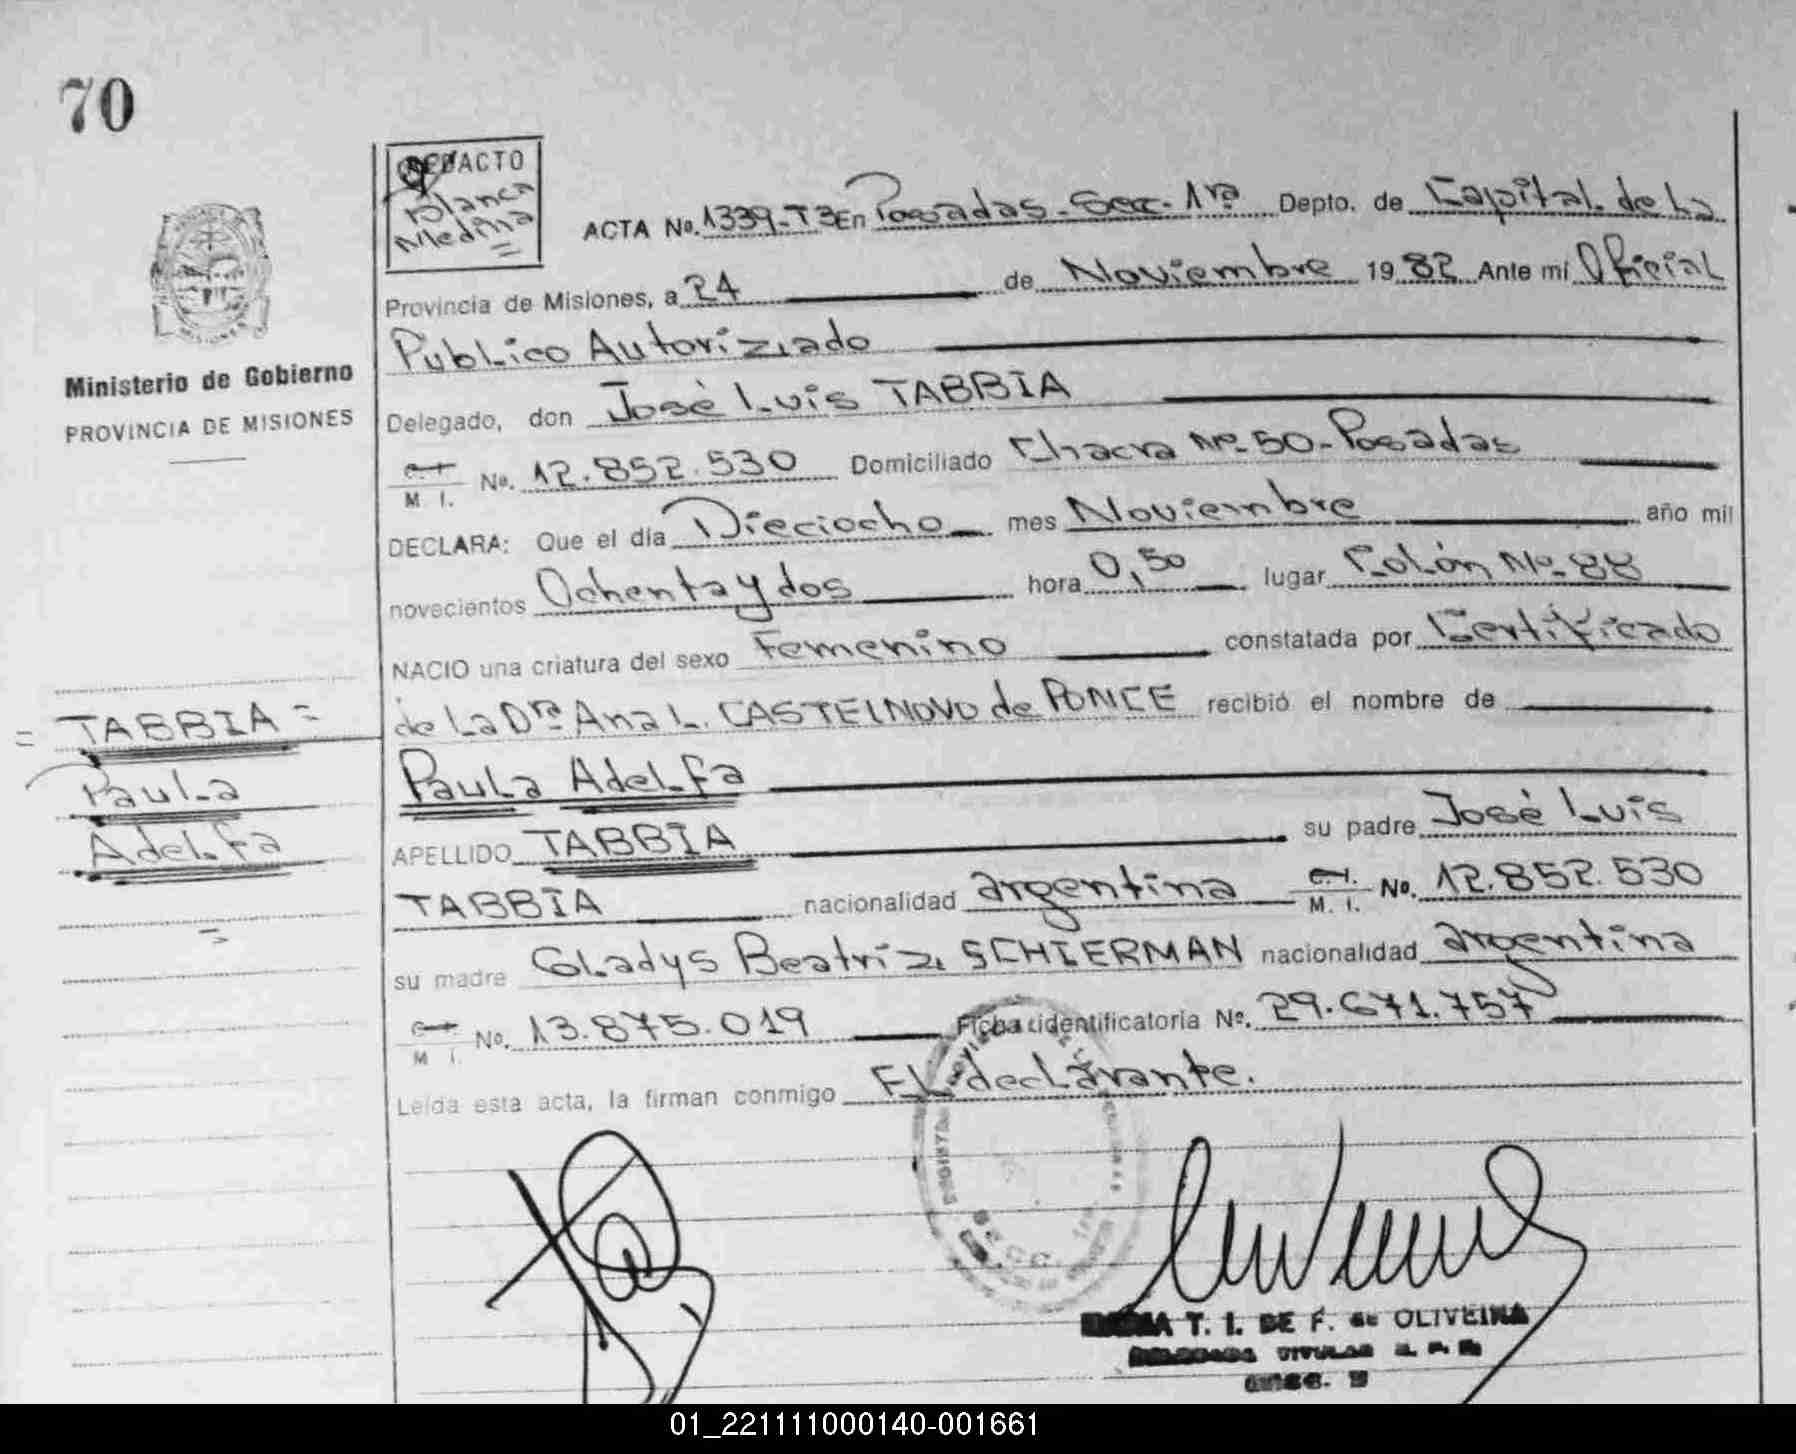 70
REDACTO
Blanca
Medina
ACTA No. 1339-T3 En Posadas-Sec. 1ra Depto. de Capital de La
Provincia de Misiones, a 24 de Noviembre 1982 Ante mí Oficial
Publico Autorizado
Ministerio de Gobierno
PROVINCIA DE MISIONES
Delegado, don José Luis TABBIA
M. I. No. 12.852.530 Domiciliado Chacra No. 50-Posadas
DECLARA: Que el día Dieciocho mes Noviembre año mil
novecientos Ochenta y dos hora 0,50 lugar Colón No. 88
NACIO una criatura del sexo Femenino constatada por Certificado
de La Dra Ana L. CASTELNOVO de PONCE recibió el nombre de
= TABBIA =
Paula
Adelfa
=
Paula Adelfa
APELLIDO TABBIA su padre José Luis
TABBIA nacionalidad argentina C.I. M. I. No. 12.852.530
su madre Gladys Beatriz SCHIERMAN nacionalidad argentina
M I. No. 13.875.019 Ficha identificatoria No. 29.671.757
Leída esta acta, la firman conmigo EL declarante.
T. I. DE F. de OLIVEIRA
TITULAR
01_221111000140-001661